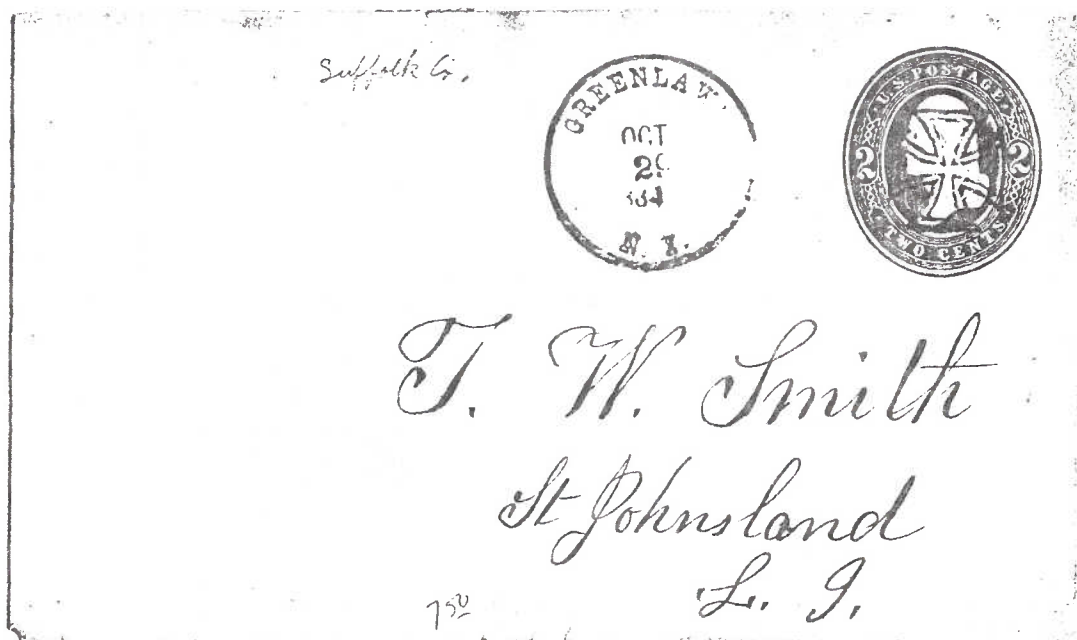 Suffolk Co.
GREENLAW
OCT
29
884
N. Y.
U.S POSTAGE
2 2
TWO CENTS
T. W. Smith
St Johnsland
L. I.
7 50